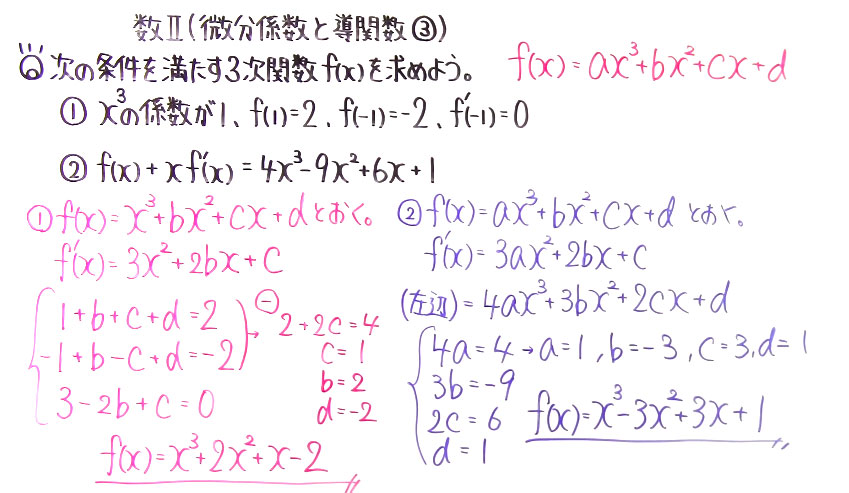 数Ⅱ(微分係数と導関数③)
次の条件を満たす3次関数f(x)を求めよう。 f(x)=ax³+bx²+cx+d
① x³の係数が1、f(1)=2、f(-1)=-2、f'(-1)=0
② f(x)+xf'(x)=4x³-9x²+6x+1
① f(x)=x³+bx²+cx+dとおく。
f'(x)=3x²+2bx+c
1+b+c+d=2
-1+b-c+d=-2
3-2b+c=0
→ ⊖ 2+2c=4
c=1
b=2
d=-2
f(x)=x³+2x²+x-2
② f(x)=ax³+bx²+cx+d とおく。
f'(x)=3ax²+2bx+c
(左辺)=4ax³+3bx²+2cx+d
4a=4→a=1,b=-3,c=3,d=1
3b=-9
2c=6
d=1
f(x)=x³-3x²+3x+1